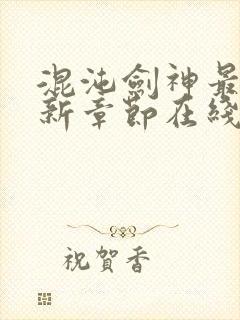 混沌劍神最
新章節在綫
祝賀香